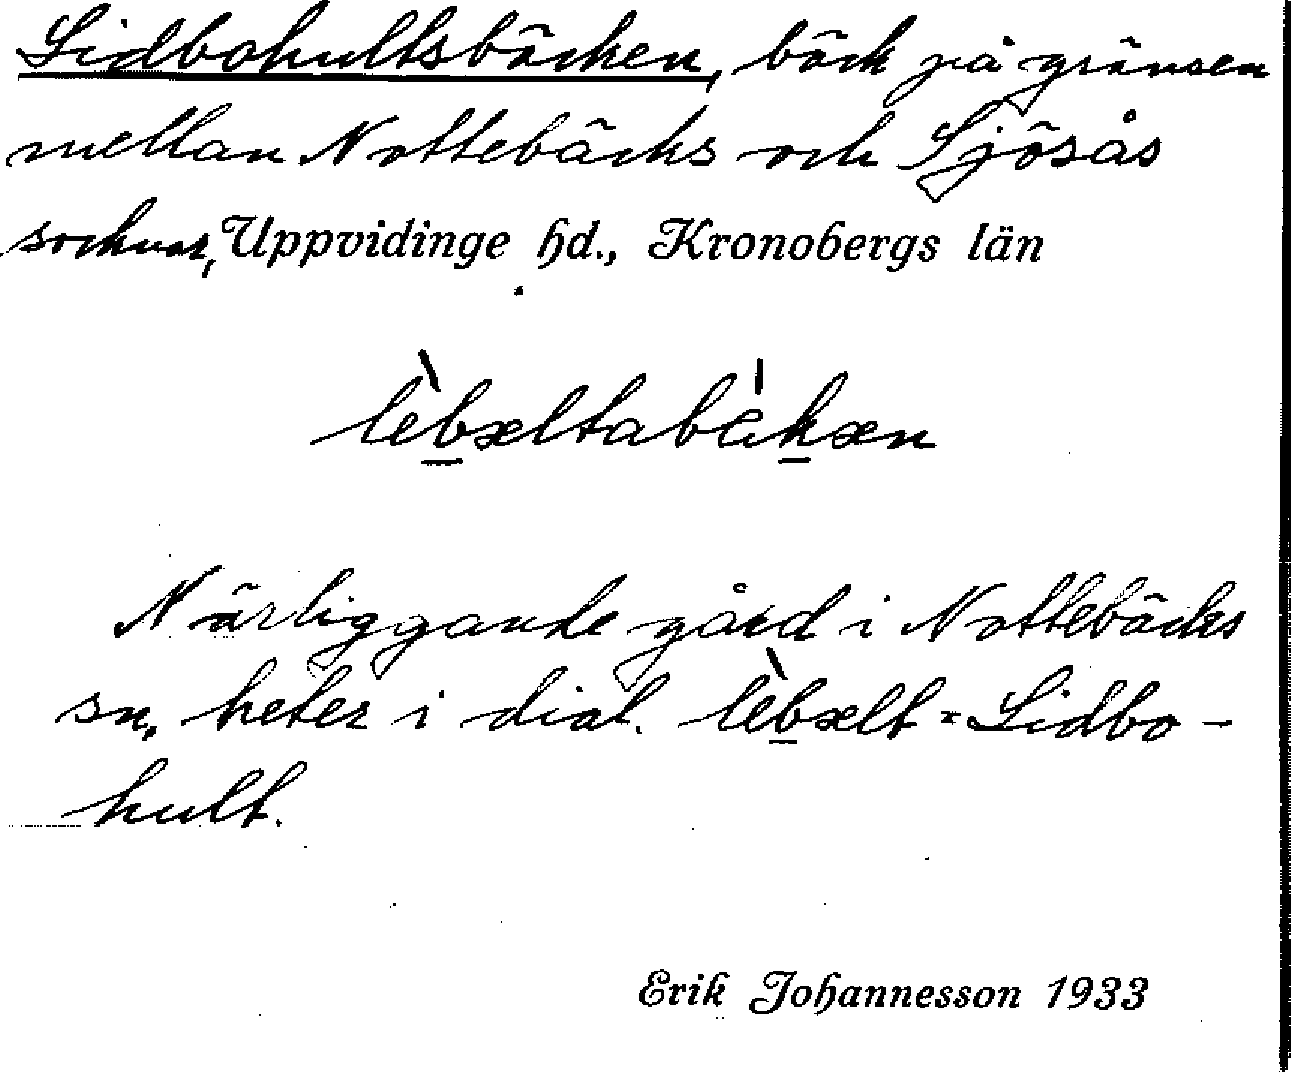 Lidbohultsbäcken, bäck på gränsen
mellan Nottebäcks och Sjösås
socknar, Uppvidinge hd., Kronobergs län
lèb̲æltabèk̲æn
Närliggande gård i Nottebäcks
sn, heter i dial. lèb̲ælt = Lidbo-
hult.
Erik Johannesson 1933